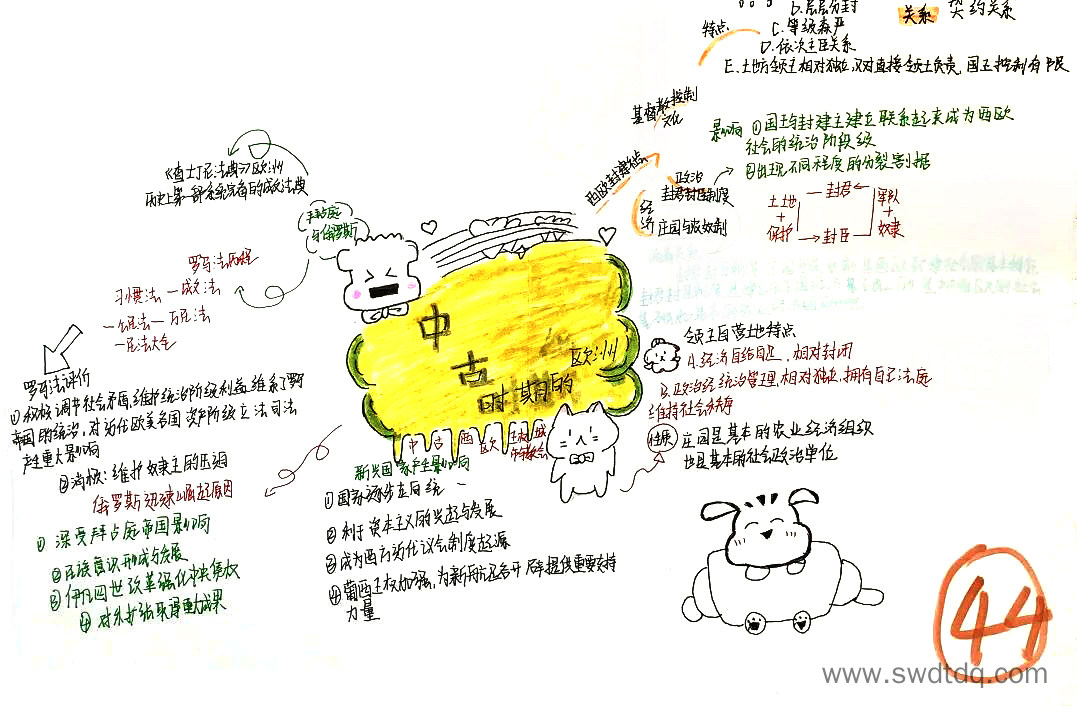 B.层层分封
关系
契约关系
特点
C.等级森严
D.依次主臣关系
E.土地方领主相对独立,只对直接领主负责,国王权利有限
基督教控制
文化
影响 ①国王与封建主建立联系起来成为西欧
社会的统治阶段级
②出现不同程度的分裂割据
西欧封建社会
政治
封君封臣制度
经济
庄园与农奴制
土地
+
保护
封君
封臣
军队
+
奴隶
《查士丁尼法典》欧洲
历史上第一部系统完备的成文法典
拜占庭
与俄罗斯
罗马法历程
习惯法—成文法
—公民法—万民法
—民法大全
罗马法评价
①积极:调节社会矛盾,维护统治阶级利益,维系了罗马
帝国的统治,对近代欧美各国资产阶级立法司法
产生重大影响
②消极:维护奴隶主的压迫
俄罗斯迅速崛起原因
① 深受拜占庭帝国影响
②民族意识形成与发展
③伊凡四世改革强化中央集权
④ 对外扩张取得重大成果
中古
时期的
欧洲
中古西欧王权、城
市与教会
新兴国家产生影响
①国家逐步走向统一
②利于资本主义的兴起与发展
③成为西方近代议会制度起源
④葡西王权加强,为新航路开辟提供重要支持
力量
领主自营地特点
A.经济自给自足,相对封闭
B.政治经统治管理,相对独立,拥有自己法庭
维持社会秩序
庄园是基本的农业经济组织
也是基本的社会政治单位
44
www.swdtdq.com